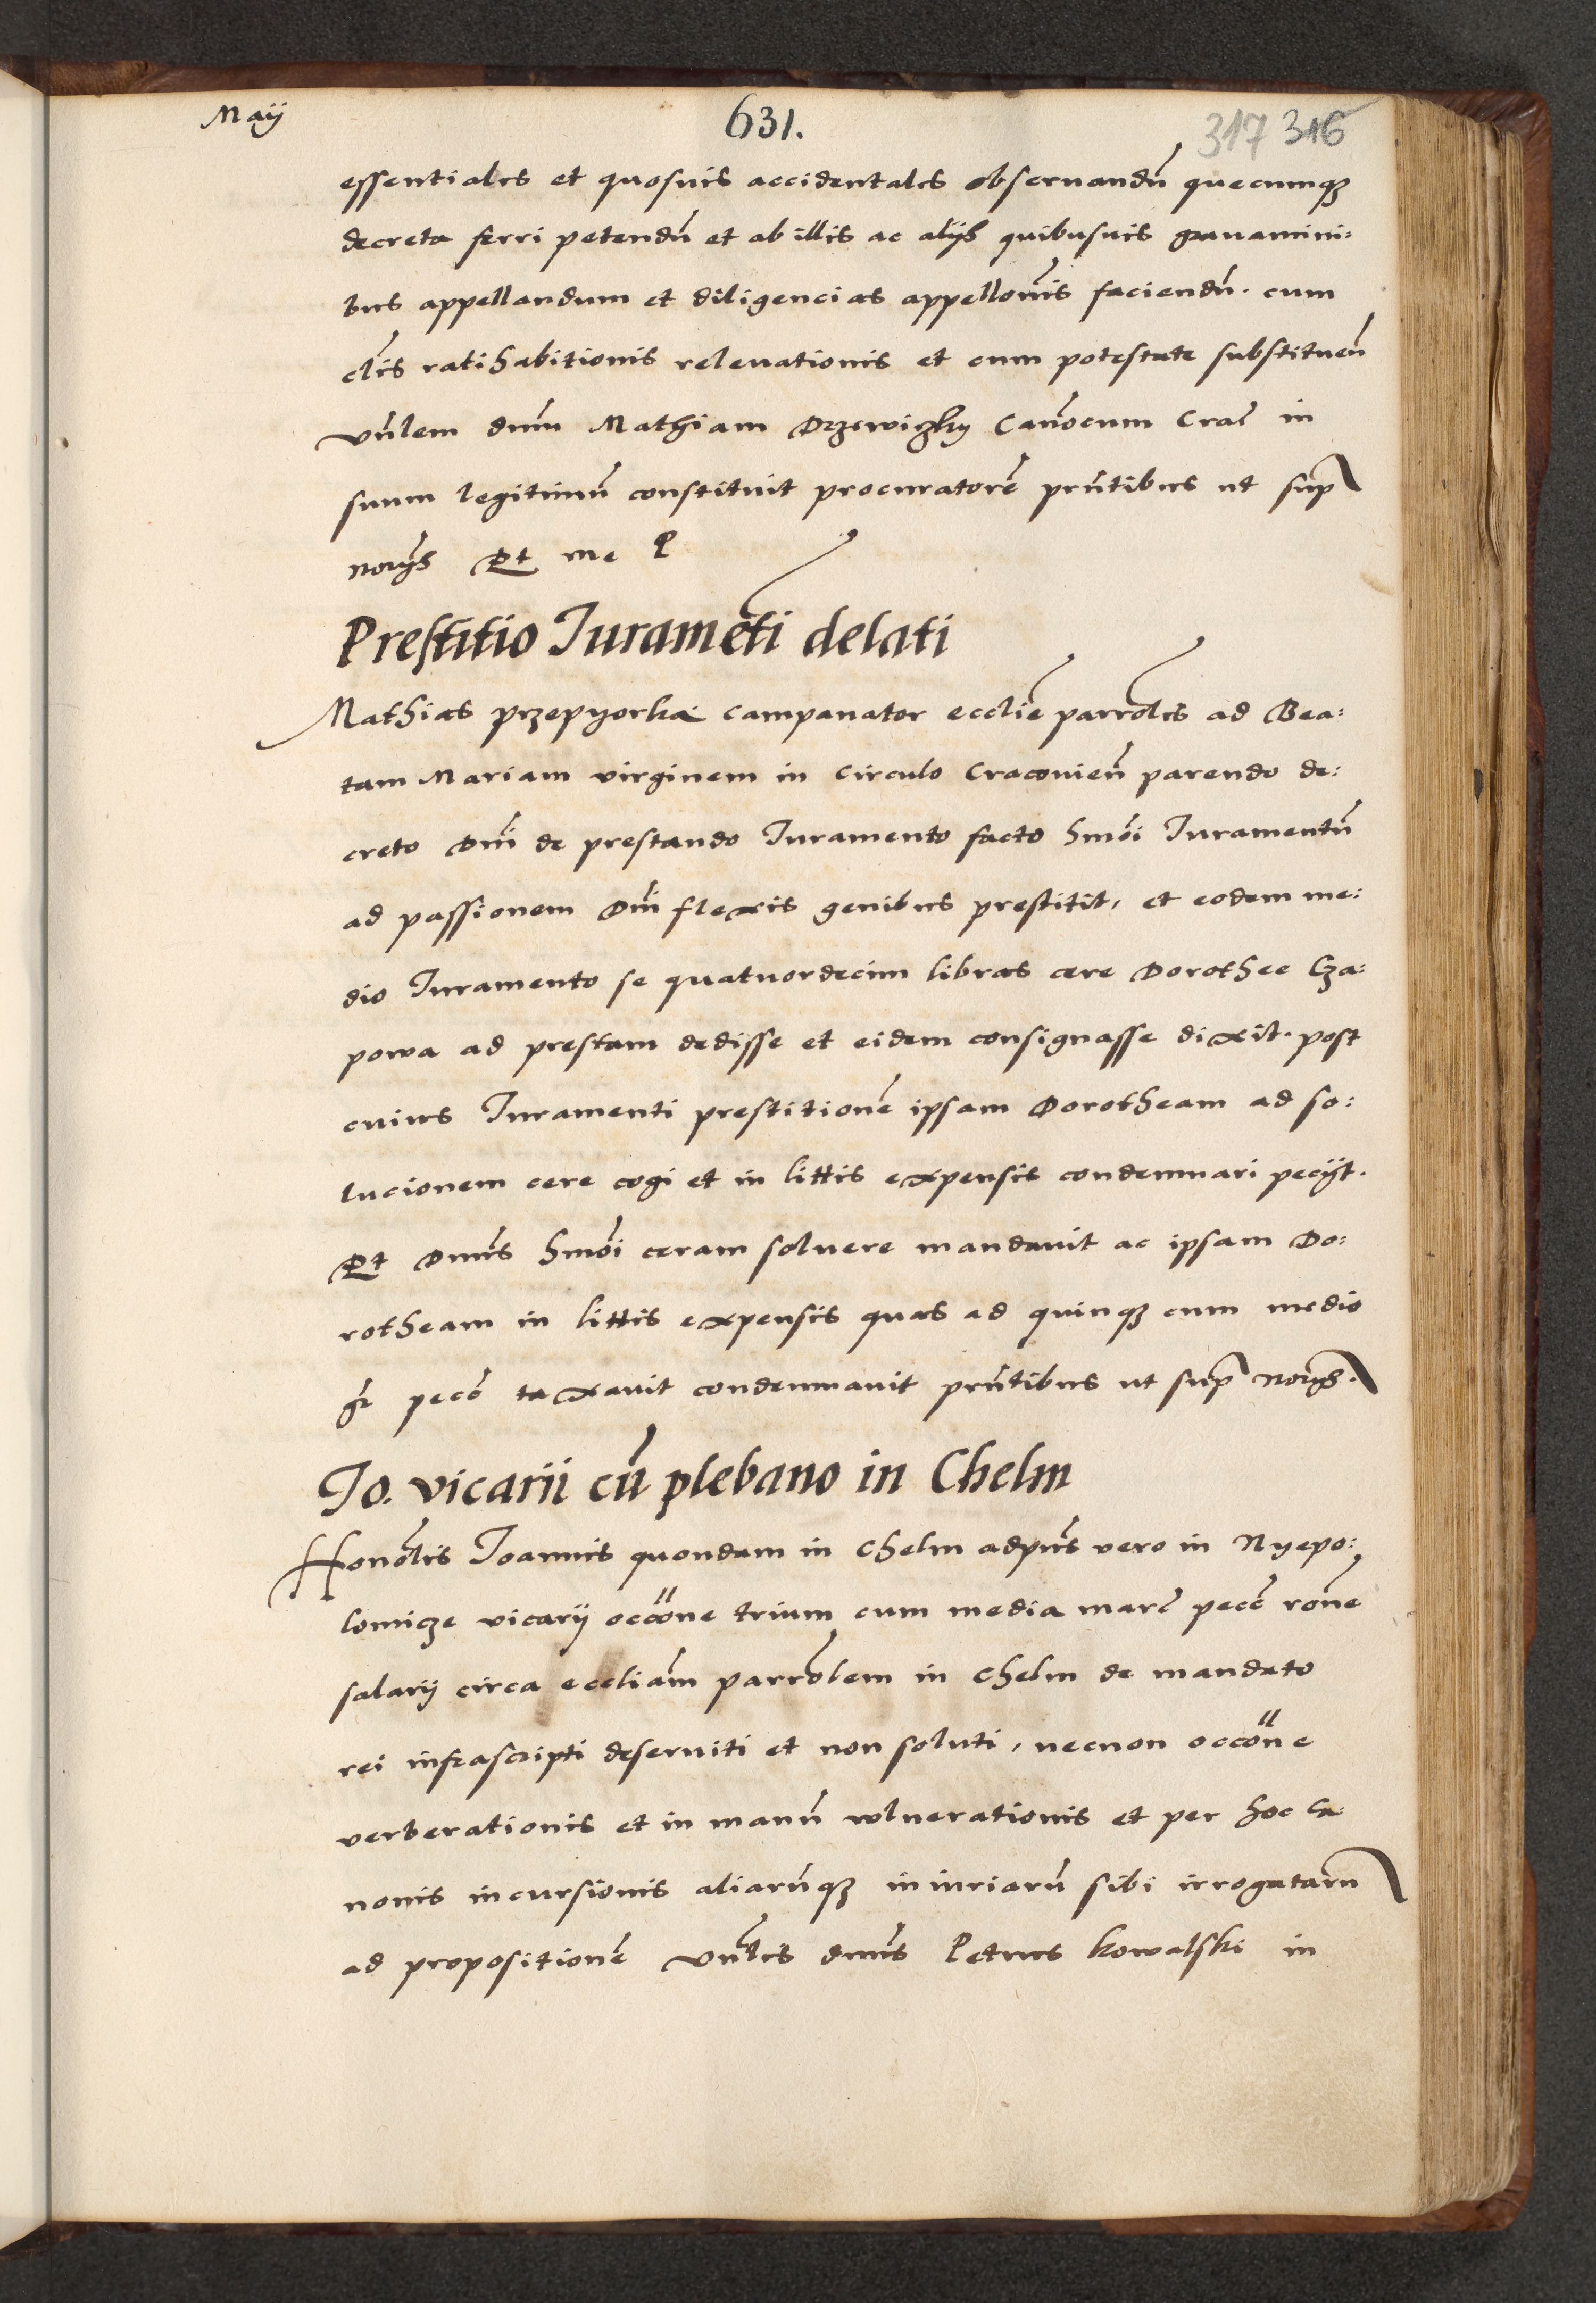 Maij
631.
317 316
essentiales et quosuis accidentales obseruandũ quecumqꝫ
decreta ferri petendũ et ab illis ac alijs quibusuis grauamini:
bus appellandum et diligencias appellõnis faciendũ. cum
clis̃ ratihabitionis releuationis et cum potestate substituen̄
vñlem dnm̃ Mathiam Drzewiczky Canõcum Crac̃ in
suum legitimũ constituit procuratorẽ pñtibus ut sup̃
norijs Et me P
Prestitio Iuramẽti delati
Mathias przepyorka campanator ecclie͂ parrõlis ad Bea:
tam Mariam virginem in circulo Cracouien̄ parendo de:
creto Dnĩ de prestando Iuramento facto hmõi Iuramentũ
ad passionem Dnĩ flexis genibus prestitit, et eodem me:
dio Iuramento se quatuordecim libras cere Dorothee Cza:
powa ad prestam dedisse et eidem consignasse dixit. post
cuius Iuramenti prestitionẽ ipsam Dorotheam ad so:
lucionem cere cogi et in littis expensis condemnari pecijt.
Et Dnũs hmõi ceram soluere mandauit ac ipsam Do:
rotheam in littis expensis quas ad quinqꝫ cum medio
gr̃ pecc̃ taxauit condemnauit pñtibus ut sup̃ norijs.
Io. vicarii cũ plebano in Chelm
Honõlis Ioannis quondam in Chelm adpñs vero in Nyepo:
lomicze vicarij occõne trium cum media marc̃ pecc̃ rõne
salarij circa eccliam̃ parrõlem in Chelm de mandato
rei infrascripti deseruiti et non soluti, necnon occõne
verberationis et in manũ vulnerationis et per hoc Ca:
nonis incursionis aliarũqꝫ iniuriarũ sibi irrogatarũ
ad propositionẽ vñlis dnũs Petrus kowalski in